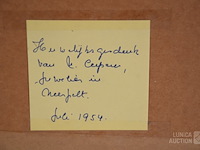 Huwelijksgeschenk
van
juwelier in
Neerpelt.
Juli 1954.
LUNICA
AUCTION